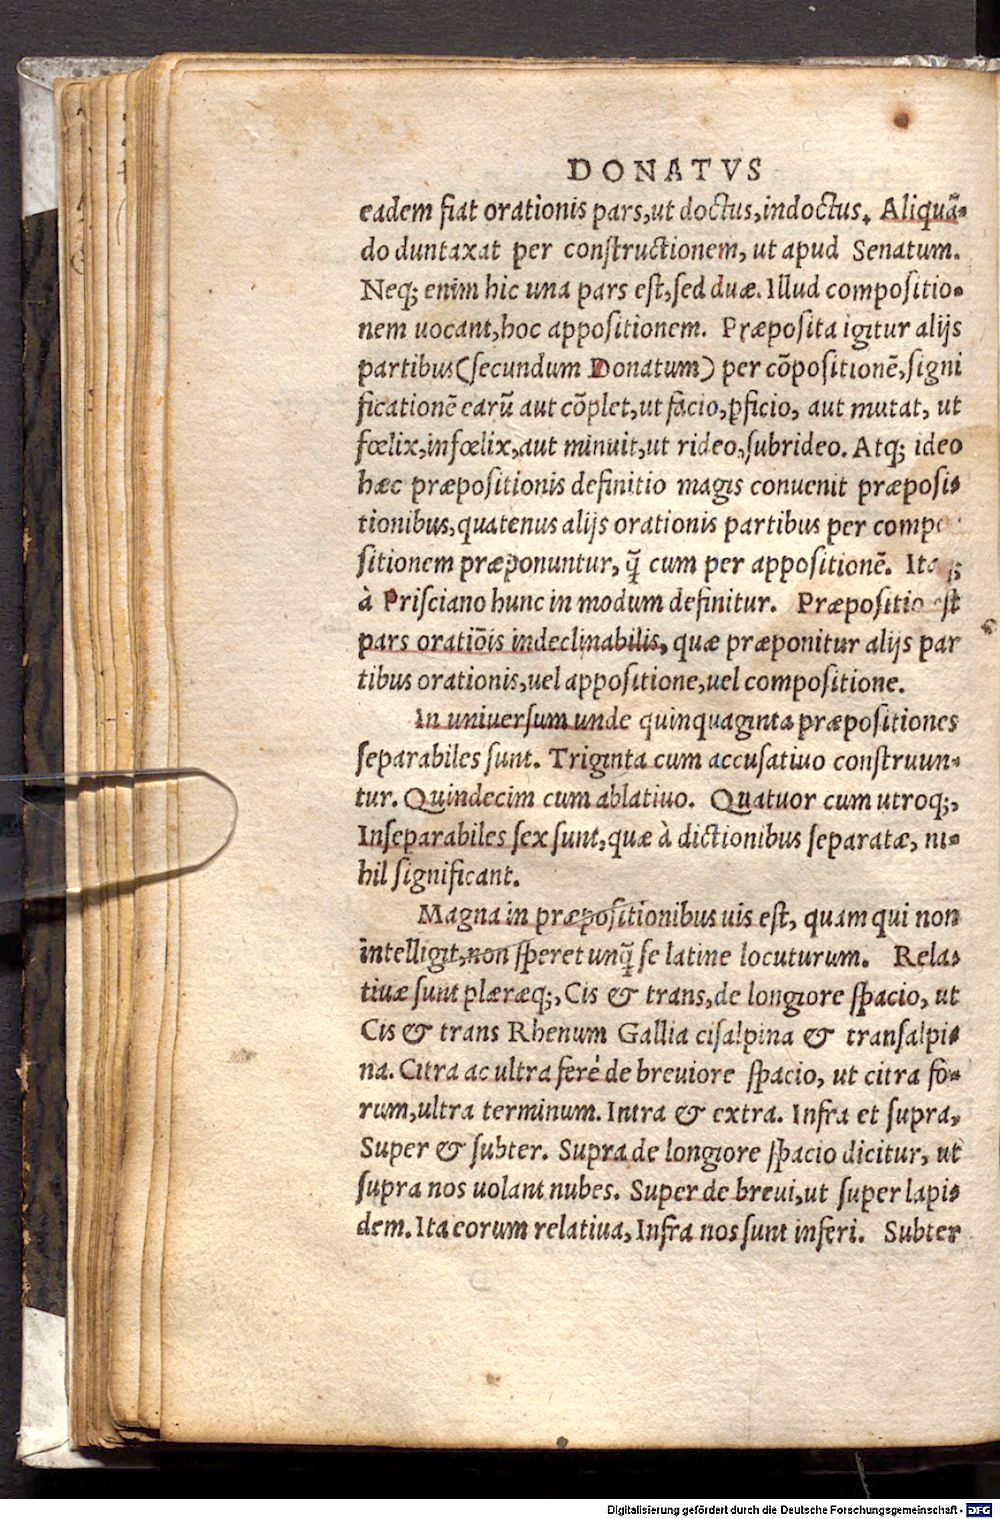 DONATVS
eadem fiat orationis pars, ut doctus, indoctus. Aliquã-
do duntaxat per constructionem, ut apud Senatum.
Neq; enim hic una pars est, sed duæ. Illud compositio-
nem uocant, hoc appositionem. Præposita igitur alijs
partibus (secundum Donatum) per cõpositionẽ, signi
ficationẽ earũ aut cõplet, ut facio, ꝑficio, aut mutat, ut
fœlix, infœlix, aut minuit, ut rideo, subrideo. Atq; ideo
hæc præpositionis definitio magis conuenit præposi-
tionibus, quatenus alijs orationis partibus per compo
sitionem præponuntur, q̃ cum per appositionẽ. Itaq;
à Prisciano hunc in modum definitur. Præpositio est
pars oratiõis indeclinabilis, quæ præponitur alijs par
tibus orationis, uel appositione, uel compositione.
In uniuersum unde quinquaginta præpositiones
separabiles sunt. Triginta cum accusatiuo construun-
tur. Quindecim cum ablatiuo. Quatuor cum utroq;,
Inseparabiles sex sunt, quæ à dictionibus separatæ, ni-
hil significant.
Magna in præpositionibus uis est, quam qui non
intelligit, non speret unq̃ se latine locuturum. Rela-
tiuæ sunt plæræq;, Cis & trans, de longiore spacio, ut
Cis & trans Rhenum Gallia cisalpina & transalpi-
na. Citra ac ultra ferè de breuiore spacio, ut citra fo-
rum, ultra terminum. Intra & extra. Infra et supra,
Super & subter. Supra de longiore spacio dicitur, ut
supra nos uolant nubes. Super de breui, ut super lapi-
dem. Ita eorum relatiua, Infra nos sunt inferi. Subter
Digitalisierung gefördert durch die Deutsche Forschungsgemeinschaft - DFG